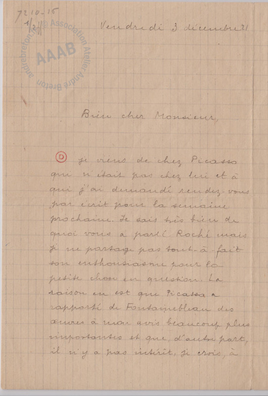 Vendredi 3 décembre
Association Atelier André Breton
AAAB
Bien cher Monsieur,
je viens de chez Picasso
qui n'était pas chez lui et à
qui j'ai demandé rendez-vous
par écrit pour la semaine
prochaine. Je sais très bien de
quoi vous a parlé Roché mais
je ne partage pas tout à fait
son enthousiasme pour la
petite chose en question. La
raison en est que Picasso a
rapporté de Fontainebleau des
œuvres à mon avis beaucoup plus
importantes et que, d'autre part,
il n'y a pas intérêt, je crois, à